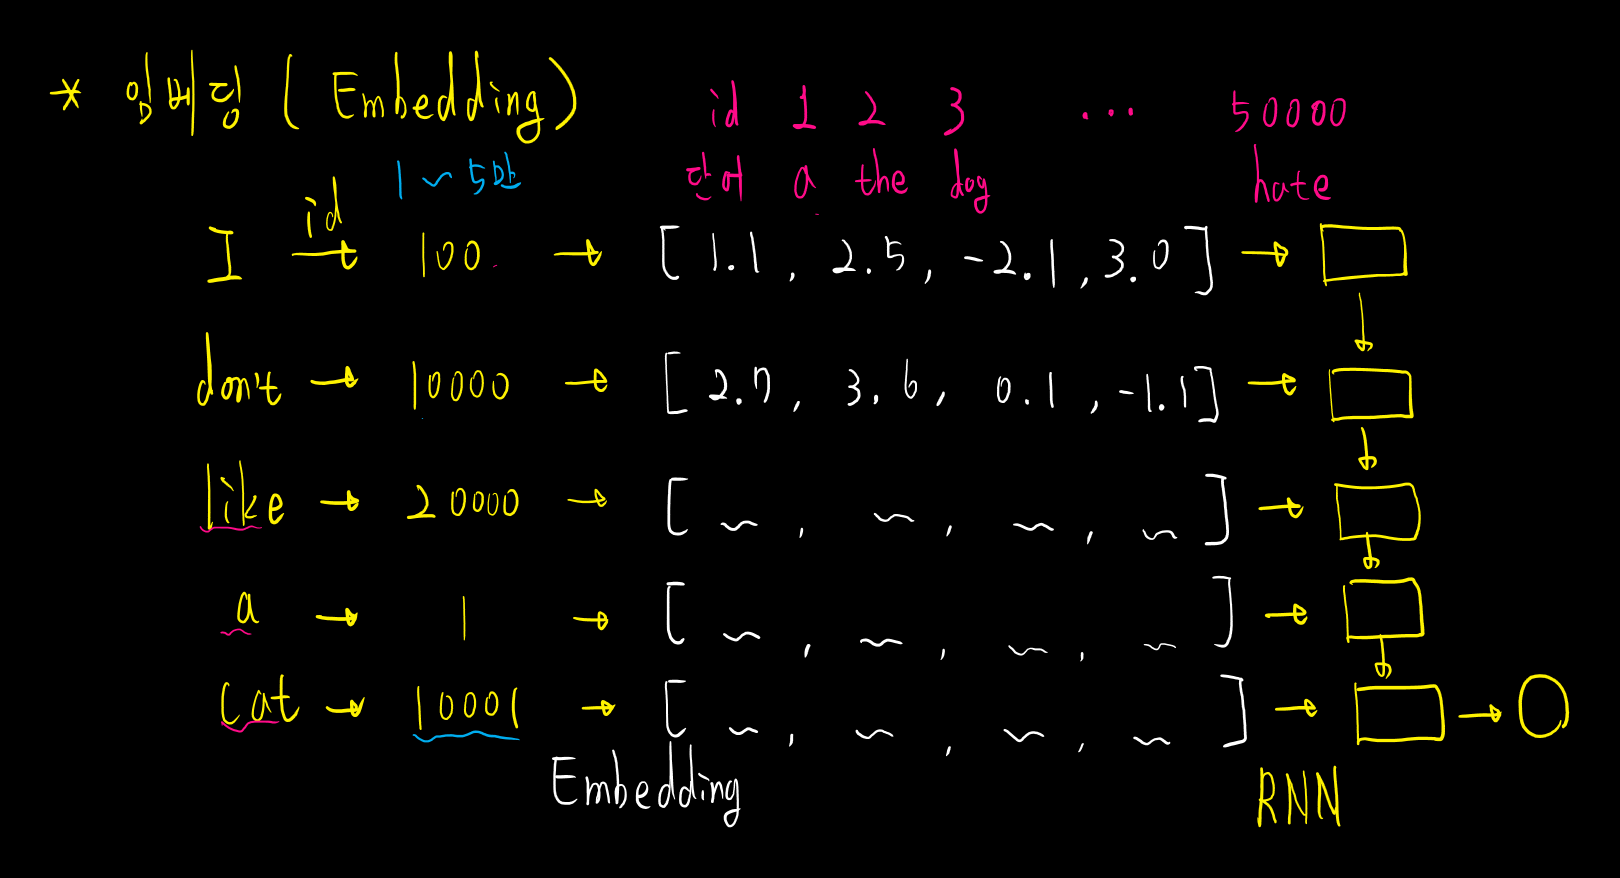 * 임베딩 ( Embedding )
id 1 2 3 ... 50000
단어 a the dog hate
1 ~ 5만
id
I → 100 → [ 1.1 , 2.5 , -2.1 , 3.0 ] →
don't → 10000 → [ 2.7 , 3.6 , 0.1 , -1.1 ] →
like → 20000 → [ ~ , ~ , ~ , ~ ] →
a → 1 → [ ~ , ~ , ~ , ~ ] →
cat → 10001 → [ ~ , ~ , ~ , ~ ] → → O
Embedding RNN